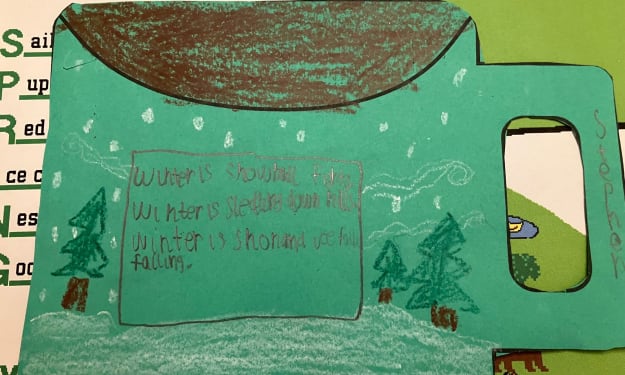 Sail
Pup
Red
ce c
Nes
Goo
Winter is Snowball
Winter is Sledding down hills
Winter is Snow and ice
falling.
Stephen